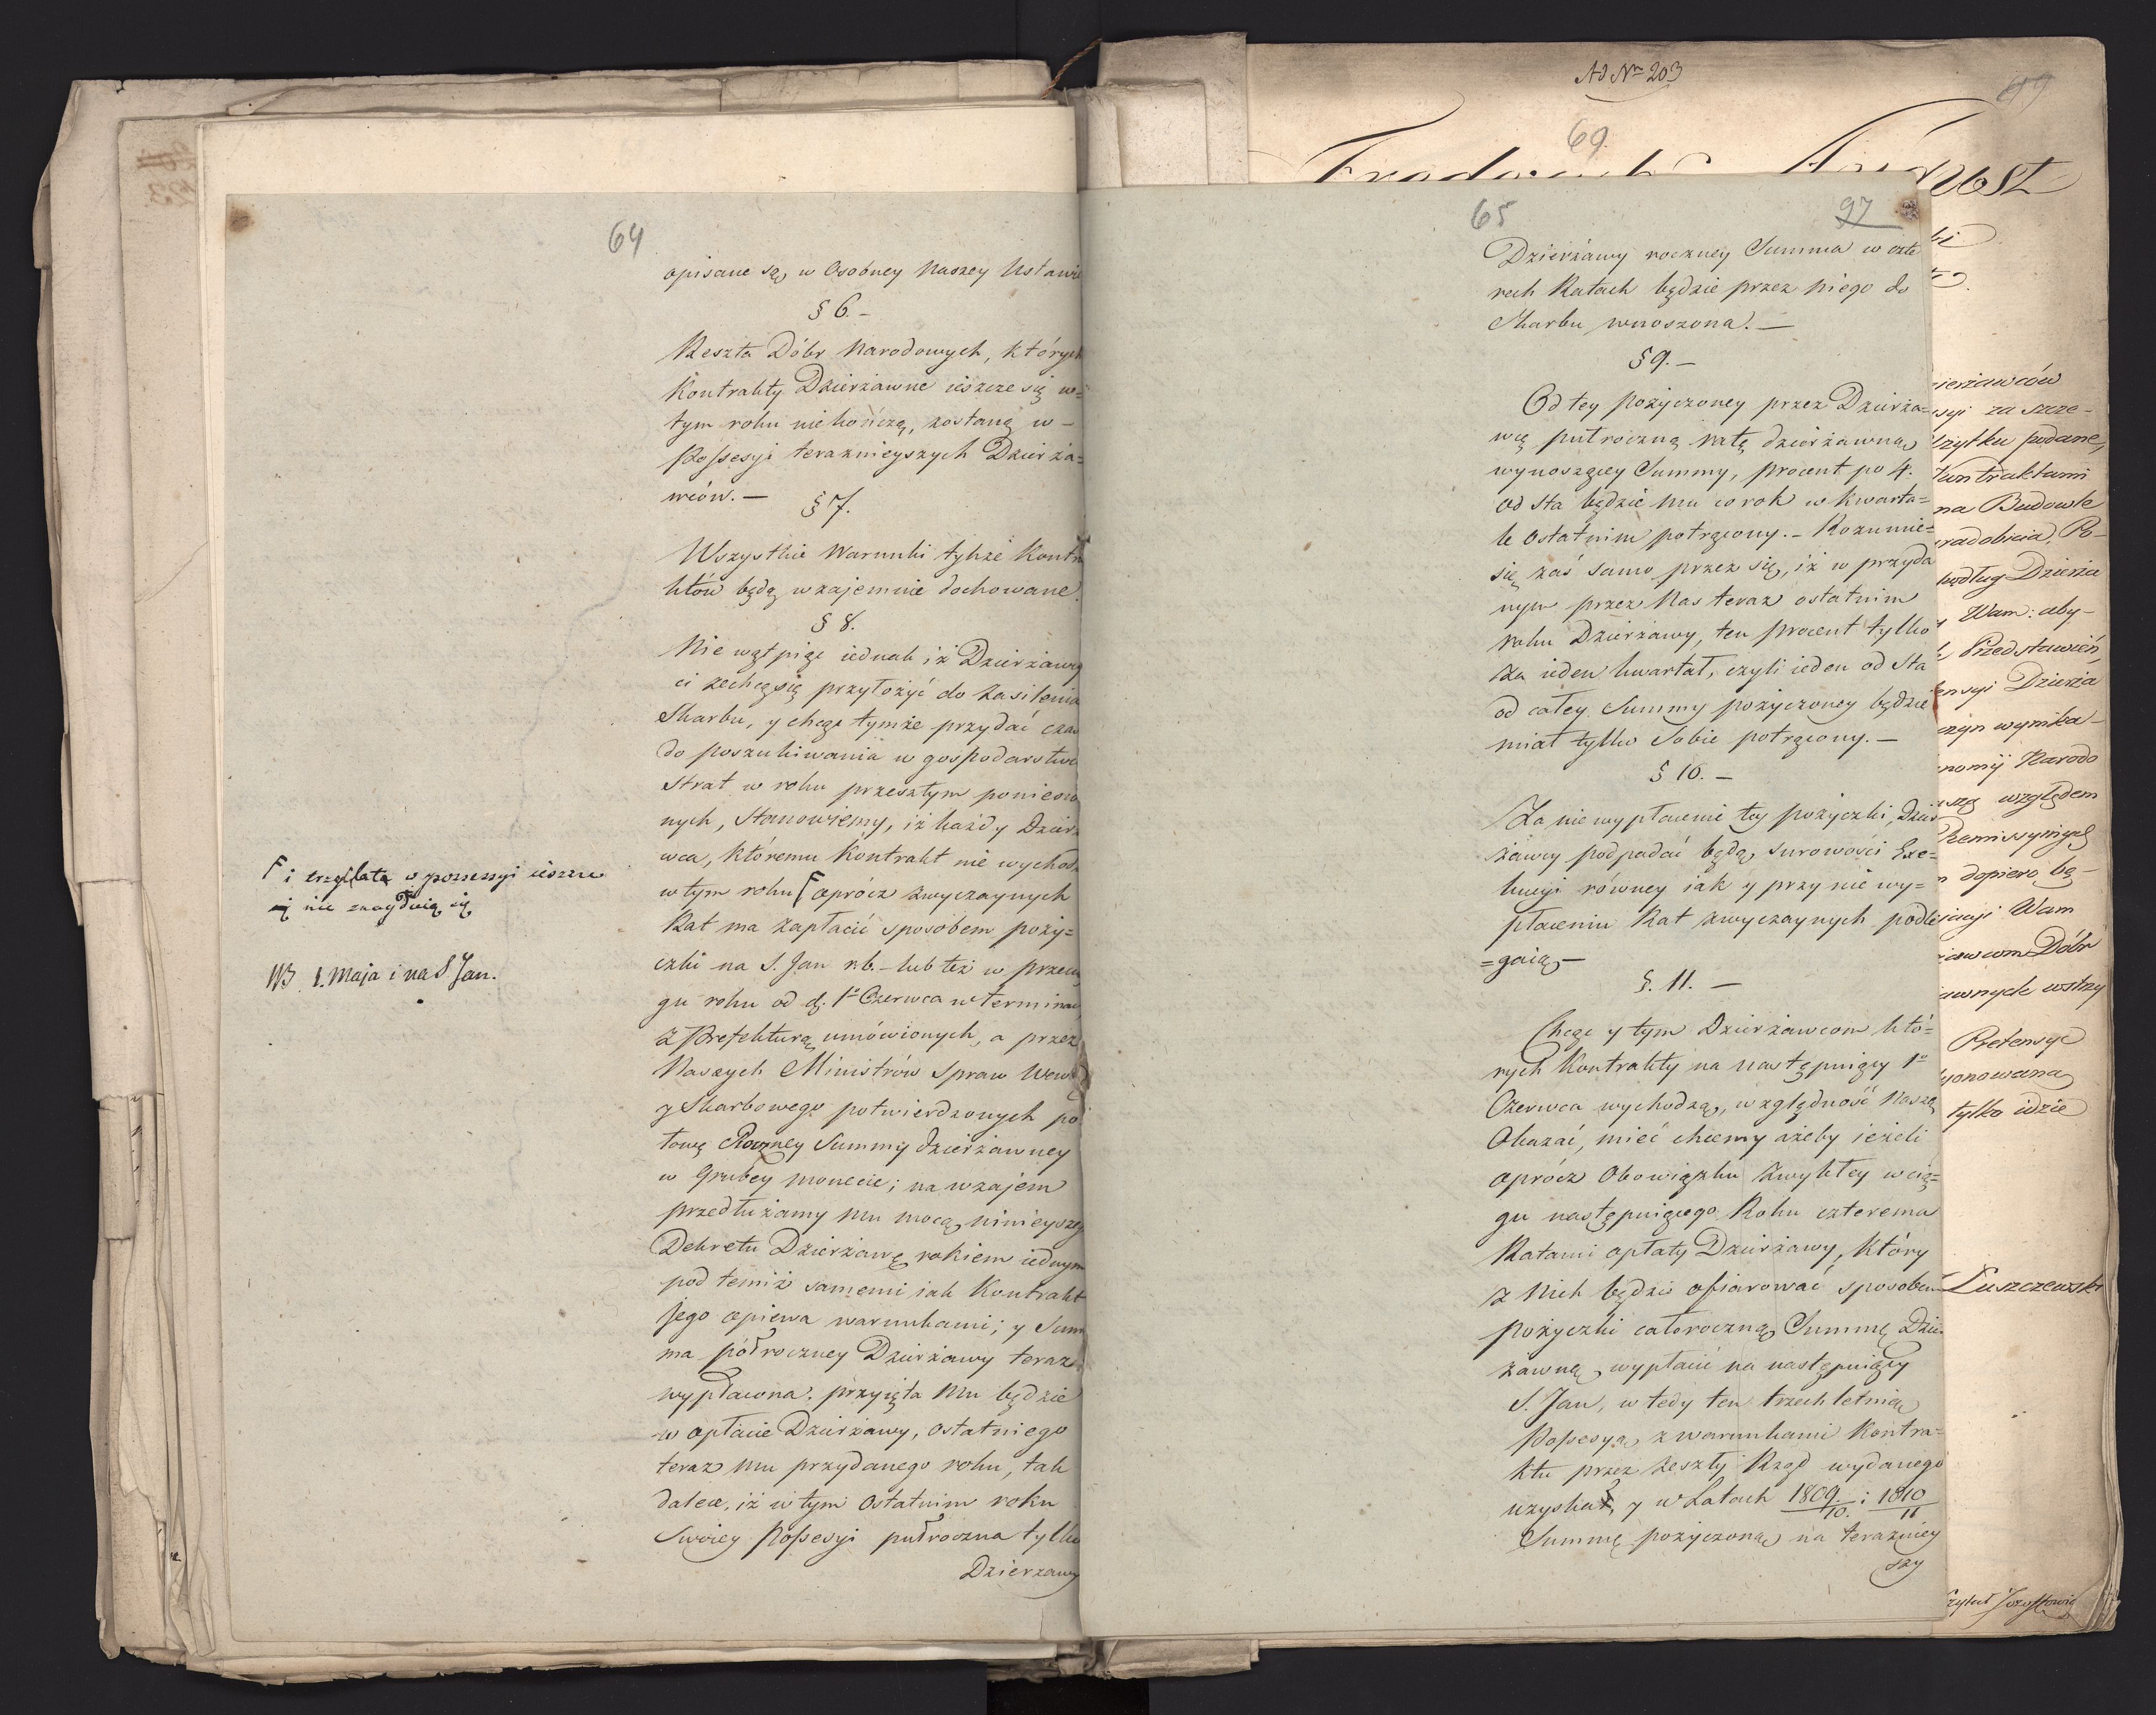 64
opisane są, w Osobney Naszey Ustawie
§ 6. –
Reszta Dóbr Narodowych, których
Kontrakty Dzierżawne ieszcze się w=
tym roku nie kończą, zostaną w –
Possesyi teraznieyszych Dzierża=
wców. –
§ 7.
Wszystkie Warunki tychże Kontra
któw będą wzajemnie dochowane.
§ 8.
Nie wątpiąc iednak iż Dzierżawcy
ci zechcą się przyłożyć do zasilenia
Skarbu, y chcąc tymże przydać czas
do poszukiwania w gospodarstwie
strat w roku przeszłym poniesio
nych, Stanowiemy, iż każdy Dzierża
wca, któremu Kontrakt nie wychodzi
w tym roku F oprócz zwyczaynych
Rat ma zapłacić sposobem poży=
czki na S. Jan r.b. – lub też w przecią
gu roku od d. 1º Czerwca w terminach
z Prefekturą umówionych, a przez
Naszych Ministrów Spraw Wewn
y Skarbowego potwierdzonych po
łowę Roczney Summy dzierżawney
w Grubey monecie; na wzajem
przedłużamy mu mocą ninieyszego
Dekretu Dzierżawę rokiem iednym
pod temiż samemi iak Kontrakt
Jego opiewa warunkami; y Sum
ma półroczney Dzierżawy teraz
wypłacona. przyięta mu będzie
w opłacie Dzierżawy, ostatniego
teraz mu przydanego roku, tak
dalece, iż w tym Ostatnim roku
Swoiey Possesyi pułroczna tylko
Dzierżawy
F i trzy lata w possessyi ieszcze
nie znaydują się
NB 1. Maja i na S Jan.
Ad Nrº 203
99
69.
Frederick August
65
97
Dzierżawy roczney Summa w czte
rech Ratach będzie przez niego do
Skarbu wnoszona. –
§ 9. –
Od tey pożyczoney przez Dzierża=
wcę pułroczną ratę dzierżawną
wynoszącey Summy, procent po 4.
od sta będzie mu co rok w kwarta=
le ostatnim potrącony. – Rozumie=
się zaś samo przez się, iż w przyda
nym przez Nas teraz ostatnim
roku Dzierżawy, ten procent tylko
za ieden kwartał, czyli ieden od Sta
od całey Summy pożyczoney będzie
miał tylko Sobie potrącony. –
§ 10. –
Za nie wypłacenie tey pożyczki, Dzier
żawcy podpadać będą, surowości Exe=
kucyi równey iak y przy nie wy=
płaceniu Rat zwyczaynych podle
=gaią –
§. 11. –
Chcąc y tym Dzierżawcom któ=
rych Kontrakty na następuiący 1º
Czerwca wychodzą, względność Naszą
Okazać, mieć chcemy ażeby ieżeli
oprócz Obowiązku zwykłey w cią=
gu następuiącego Roku czterema
Ratami opłaty Dzierżawy, który
z Nich będzie ofiarować sposobem
pożyczki całoroczną Summę Dzier
żawną wypłacić na następuiący
S. Jan, w tedy ten trzechletnią
Possesyą z warunkami Kontra=
ktu przez zeszły Rząd wydanego
uzyska, y w Latach 1809/10. i 1810/11
Summę pożyczoną na terazniey
szy
ierżawców
syi za szcze-
żytku podane,
Kontraktami
na Budowle
radobicia, Po-
według Dzierża
Wam: aby-
Przedstawień,
ensyi Dzierża
czyn wynika-
nomij Narodo
szą względem
Remissyinych
dopiero bę-
Wam
awcom Dóbr
awnych wstrzy
Pretensye
yonowana
tylko idzie
Łuszczewski